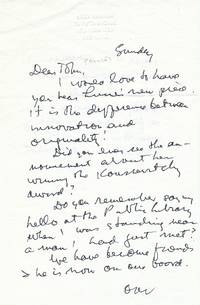 Sunday
Dear John,
I would love to have
you hear new piece.
It is the difference between
innovation and
originality!
Did you ever see the an-
nouncement about her
winning the Koussevitzky
award?
Do you remember saying
hello at the Public Library
when I was standing near
a man I had just met?
We have become friends
> he is now on our board.